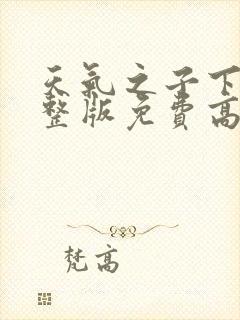 天氣之子下
整版免費高
梵高